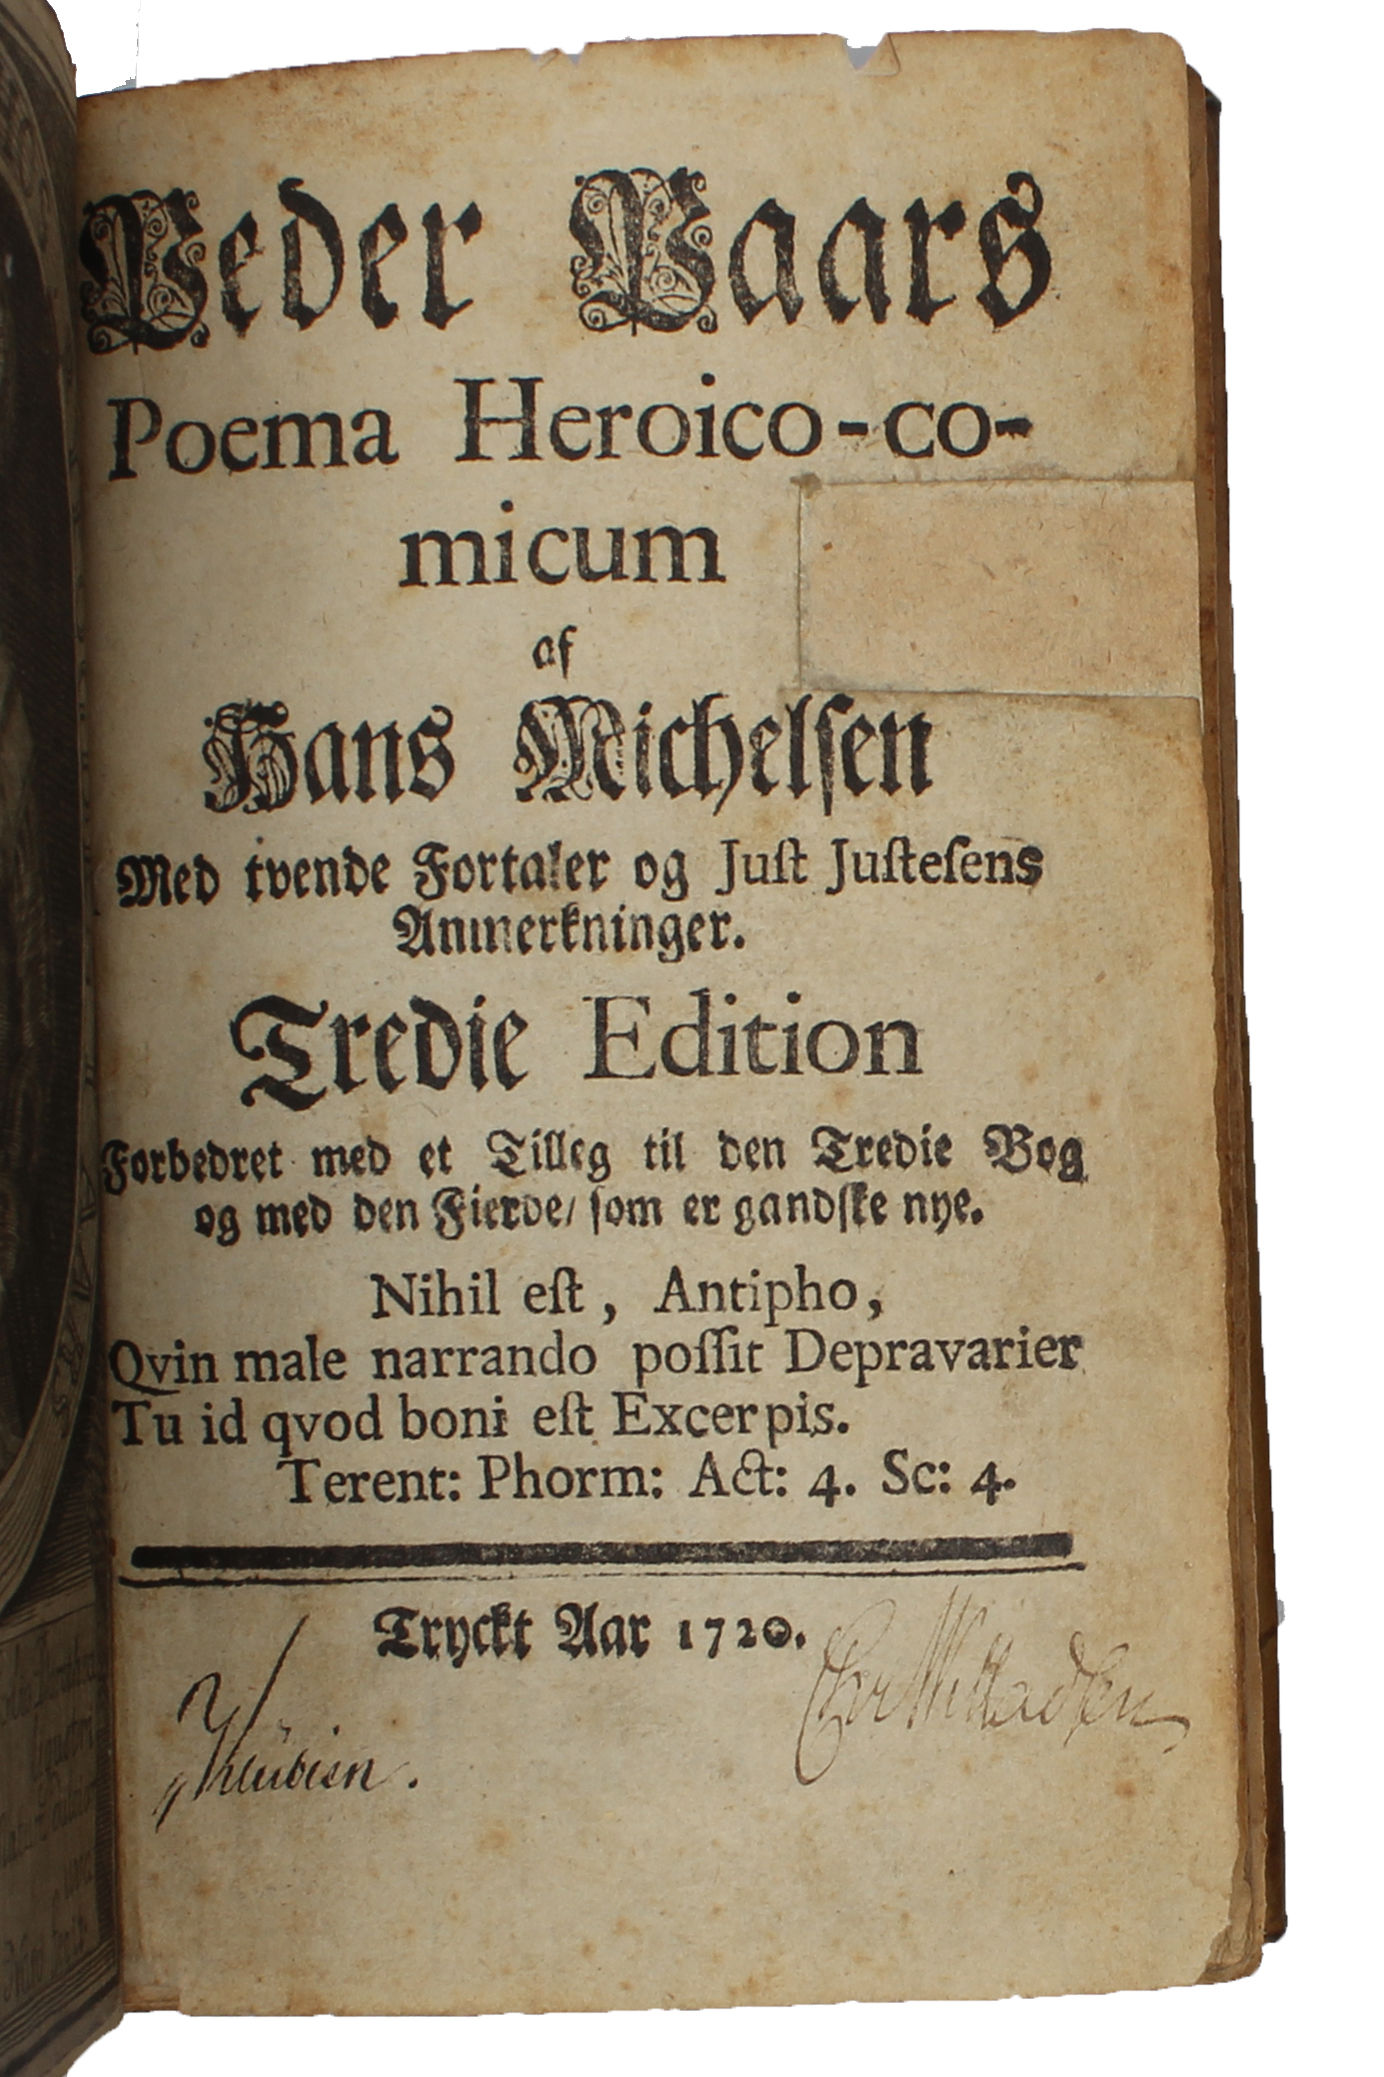 Peder Paars
Poema Heroico-co-
micum
af
Hans Michelsen
Med tvende Fortaler og Just Justesens
Anmerkninger.
Tredie Edition
Forbedret med et Tilleg til den Tredie Bog
og med den Fierde/ som er gandske nye.
Nihil est, Antipho,
Qvin male narrando possit Depravarier
Tu id qvod boni est Excerpis.
Terent: Phorm: Act: 4. Sc: 4.
Tryckt Aar 1720.